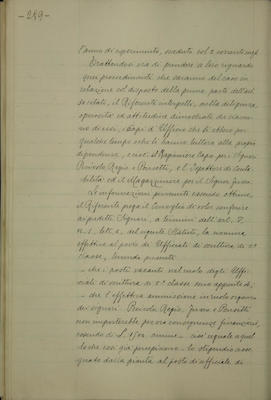 — 289 —
l'anno di esperimento, scaduto col 2 corrente mese
Trattandosi ora di prendere a loro riguardo
quei provvedimenti che saranno del caso in
relazione col disposto della prima parte dell'art.
so citato, il Riferente interpellò, sulla diligenza,
operosità ed attitudine dimostrate da ciascu-
no di essi, i Capi d'Ufficio che li ebbero per
qualche tempo e che li hanno tuttora alla propria
dipendenza, cioè: il Ragioniere Capo pei Signori
Regis e Ponsetti, e l'Ispettore di Conta
bilità ed il Magazziniere per il Signor
Le informazioni pervenute essendo ottime,
il Riferente prega il Consiglio di voler conferire
ai predetti Signori, a termini dell'art. 7,
n. 1, lett. a, del vigente Statuto, la nomina
effettiva al posto di Ufficiale di scrittura di 2ª
classe, tenendo presente
— che i posti vacanti nel ruolo degli Uffi-
ciali di scrittura di 2ª classe sono appunto
— che l'effettiva ammissione in ruolo organico
dei signori Regis, e Ponsetti
non importerebbe per ora conseguenze finanziarie,
essendo di L. 1500 annue — cioè uguale a quel
lo che essi già percepiscono — lo stipendio asse
gnato dalla pianta al posto di Ufficiale di